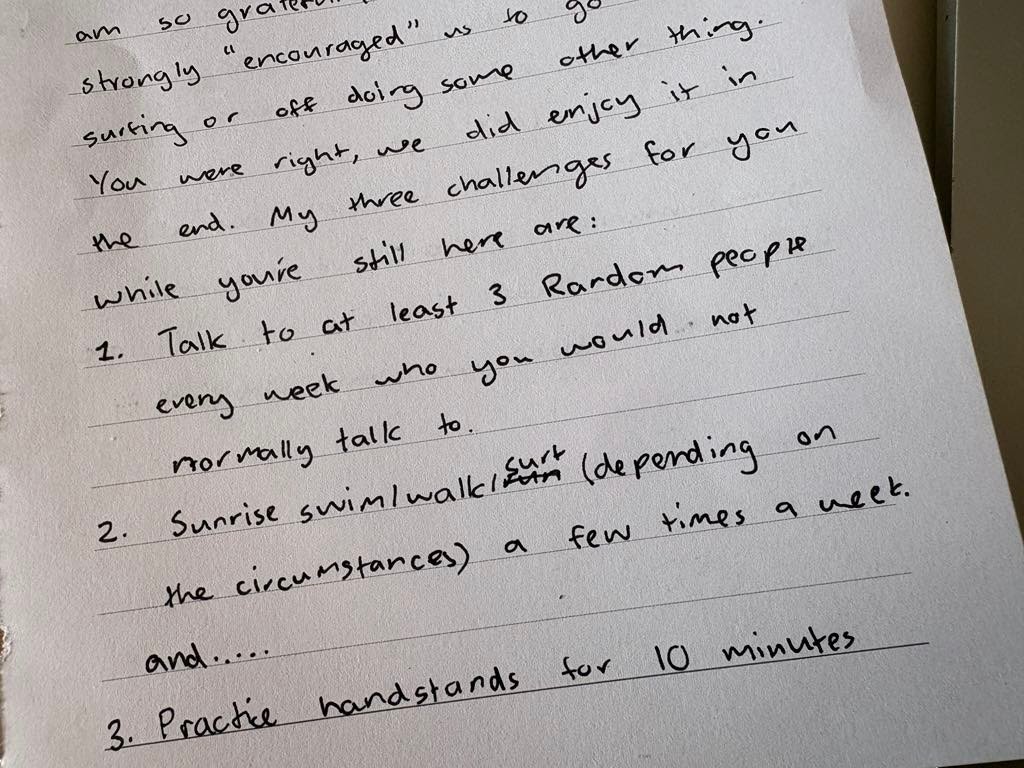 am so grateful
strongly "encouraged" us to go
surfing or off doing some other thing.
You were right, we did enjoy it in
the end. My three challenges for you
while you're still here are:
1. Talk to at least 3 Random people
every week who you would not
normally talk to.
2. Sunrise swim/walk/surf (depending on
the circumstances) a few times a week.
and.....
3. Practice handstands for 10 minutes